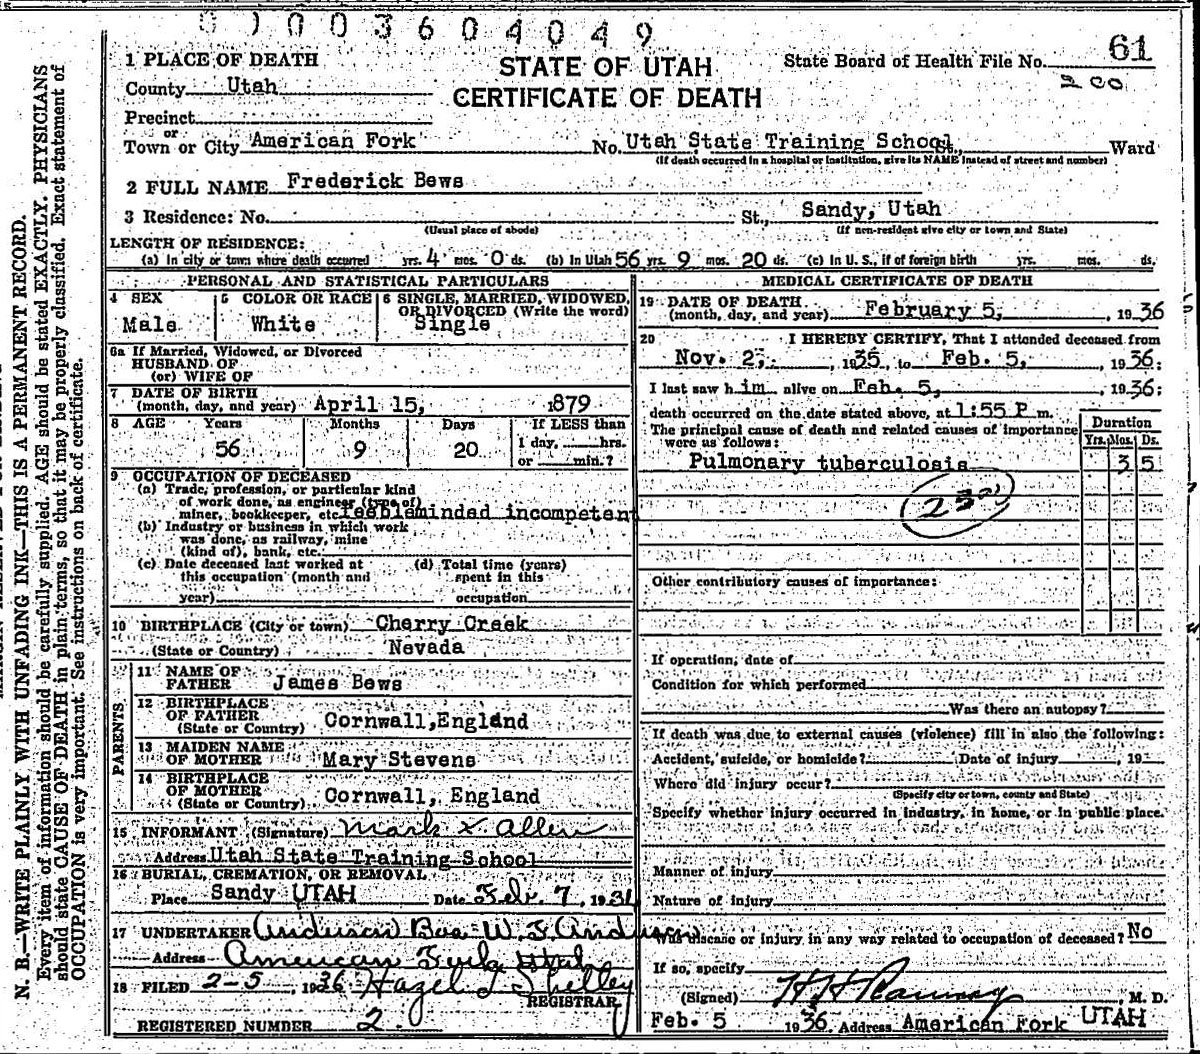 01003604049
STATE OF UTAH
CERTIFICATE OF DEATH
State Board of Health File No. 61
200
1 PLACE OF DEATH
County Utah
Precinct
or
Town or City American Fork No. Utah State Training School St., Ward
(If death occurred in a hospital or institution, give its NAME instead of street and number)
2 FULL NAME Frederick Bews
3 Residence: No. St., Sandy, Utah
(Usual place of abode) (If non-resident give city or town and State)
LENGTH OF RESIDENCE:
(a) In city or town where death occurred yrs. 4 mos. 0 ds. (b) In Utah 56 yrs. 9 mos. 20 ds. (c) In U. S., if of foreign birth yrs. mos. ds.
PERSONAL AND STATISTICAL PARTICULARS
4 SEX
Male
5 COLOR OR RACE
White
6 SINGLE, MARRIED, WIDOWED,
OR DIVORCED (Write the word)
Single
6a If Married, Widowed, or Divorced
HUSBAND OF
(or) WIFE OF
7 DATE OF BIRTH
(month, day, and year) April 15, 1879
8 AGE Years Months Days If LESS than
56 9 20 1 day, hrs.
or min.?
9 OCCUPATION OF DECEASED
(a) Trade, profession, or particular kind
of work done, as engineer (type of)
miner, bookkeeper, etc. feebleminded incompetent
(b) Industry or business in which work
was done, as railway, mine
(kind of), bank, etc.
(c) Date deceased last worked at
this occupation (month and
year)
(d) Total time (years)
spent in this
occupation
10 BIRTHPLACE (City or town) Cherry Creek
(State or Country) Nevada
PARENTS
11 NAME OF
FATHER James Bews
12 BIRTHPLACE
OF FATHER
(State or Country) Cornwall, England
13 MAIDEN NAME
OF MOTHER Mary Stevens
14 BIRTHPLACE
OF MOTHER
(State or Country) Cornwall, England
15 INFORMANT (Signature) Mark K Allen
Address Utah State Training School
16 BURIAL, CREMATION, OR REMOVAL
Place Sandy UTAH Date Feb. 7, 1936
17 UNDERTAKER Anderson Bros W. F. Anderson
Address American Fork Utah
18 FILED 2-5, 1936 Hazel L Shelley
REGISTRAR
REGISTERED NUMBER 2.
MEDICAL CERTIFICATE OF DEATH
19 DATE OF DEATH
(month, day, and year) February 5, , 1936
20 I HEREBY CERTIFY, That I attended deceased from
Nov. 2, 1935, to Feb. 5, , 1936;
I last saw him alive on Feb. 5, , 1936;
death occurred on the date stated above, at 1:55 P m.
The principal cause of death and related causes of importance
were as follows:
Duration
Yrs. Mos. Ds.
Pulmonary tuberculosis 3 5
Other contributory causes of importance:
If operation, date of
Condition for which performed
Was there an autopsy?
If death was due to external causes (violence) fill in also the following:
Accident, suicide, or homicide? Date of injury , 19
Where did injury occur?
(Specify city or town, county and State)
Specify whether injury occurred in industry, in home, or in public place.
Manner of injury
Nature of injury
Was disease or injury in any way related to occupation of deceased? No
If so, specify
(Signed) M. D.
Feb. 5 1936 Address American Fork UTAH
N. B.—WRITE PLAINLY WITH UNFADING INK—THIS IS A PERMANENT RECORD.
Every item of information should be carefully supplied. AGE should be stated EXACTLY. PHYSICIANS
should state CAUSE OF DEATH in plain terms, so that it may be properly classified. Exact statement of
OCCUPATION is very important. See instructions on back of certificate.